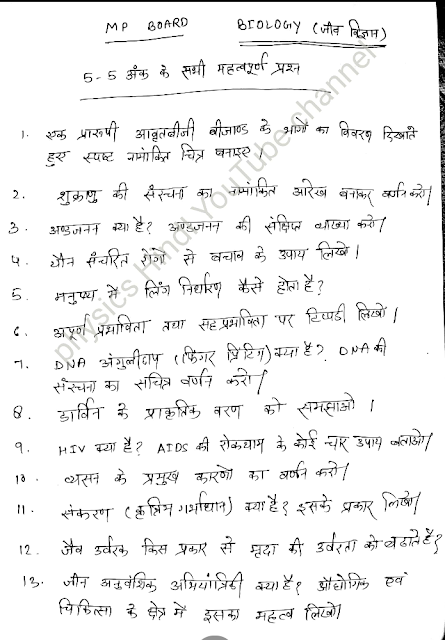 MP BOARD BIOLOGY (जीव विज्ञान)
5-5 अंक के सभी महत्वपूर्ण प्रश्न
1. एक प्रारूपी आवृतबीजी बीजाण्ड के भागों का विवरण दिखाते
हुए स्पष्ट नामांकित चित्र बनाइए।
2. शुक्राणु की संरचना का नामांकित आरेख बनाकर वर्णन करो।
3. अण्डजनन क्या है? अण्डजनन की संक्षिप्त व्याख्या करो।
4. यौन संचरित रोगों से बचाव के उपाय लिखो।
5. मनुष्य में लिंग निर्धारण कैसे होता है?
6. अपूर्ण प्रभाविता तथा सहप्रभाविता पर टिप्पडी लिखो।
7. DNA अंगुलीछाप (फिंगर प्रिंटिंग) क्या है? DNA की
संरचना का सचित्र वर्णन करो।
8. डार्विन के प्राकृतिक वरण को समझाओ।
9. HIV क्या है? AIDS की रोकथाम के कोई चार उपाय बताओ।
10. व्यसन के प्रमुख कारणों का वर्णन करो।
11. संकरण (कृत्रिम गर्भाधान) क्या है? इसके प्रकार लिखो।
12. जैव उर्वरक किस प्रकार से मृदा की उर्वरता को बढाते है?
13. जीन अनुवंशिक अभियांत्रिकी क्या है? औद्योगिक एवं
चिकित्सा के क्षेत्र में इसका महत्व लिखो।
physics Hindi YouTube channel